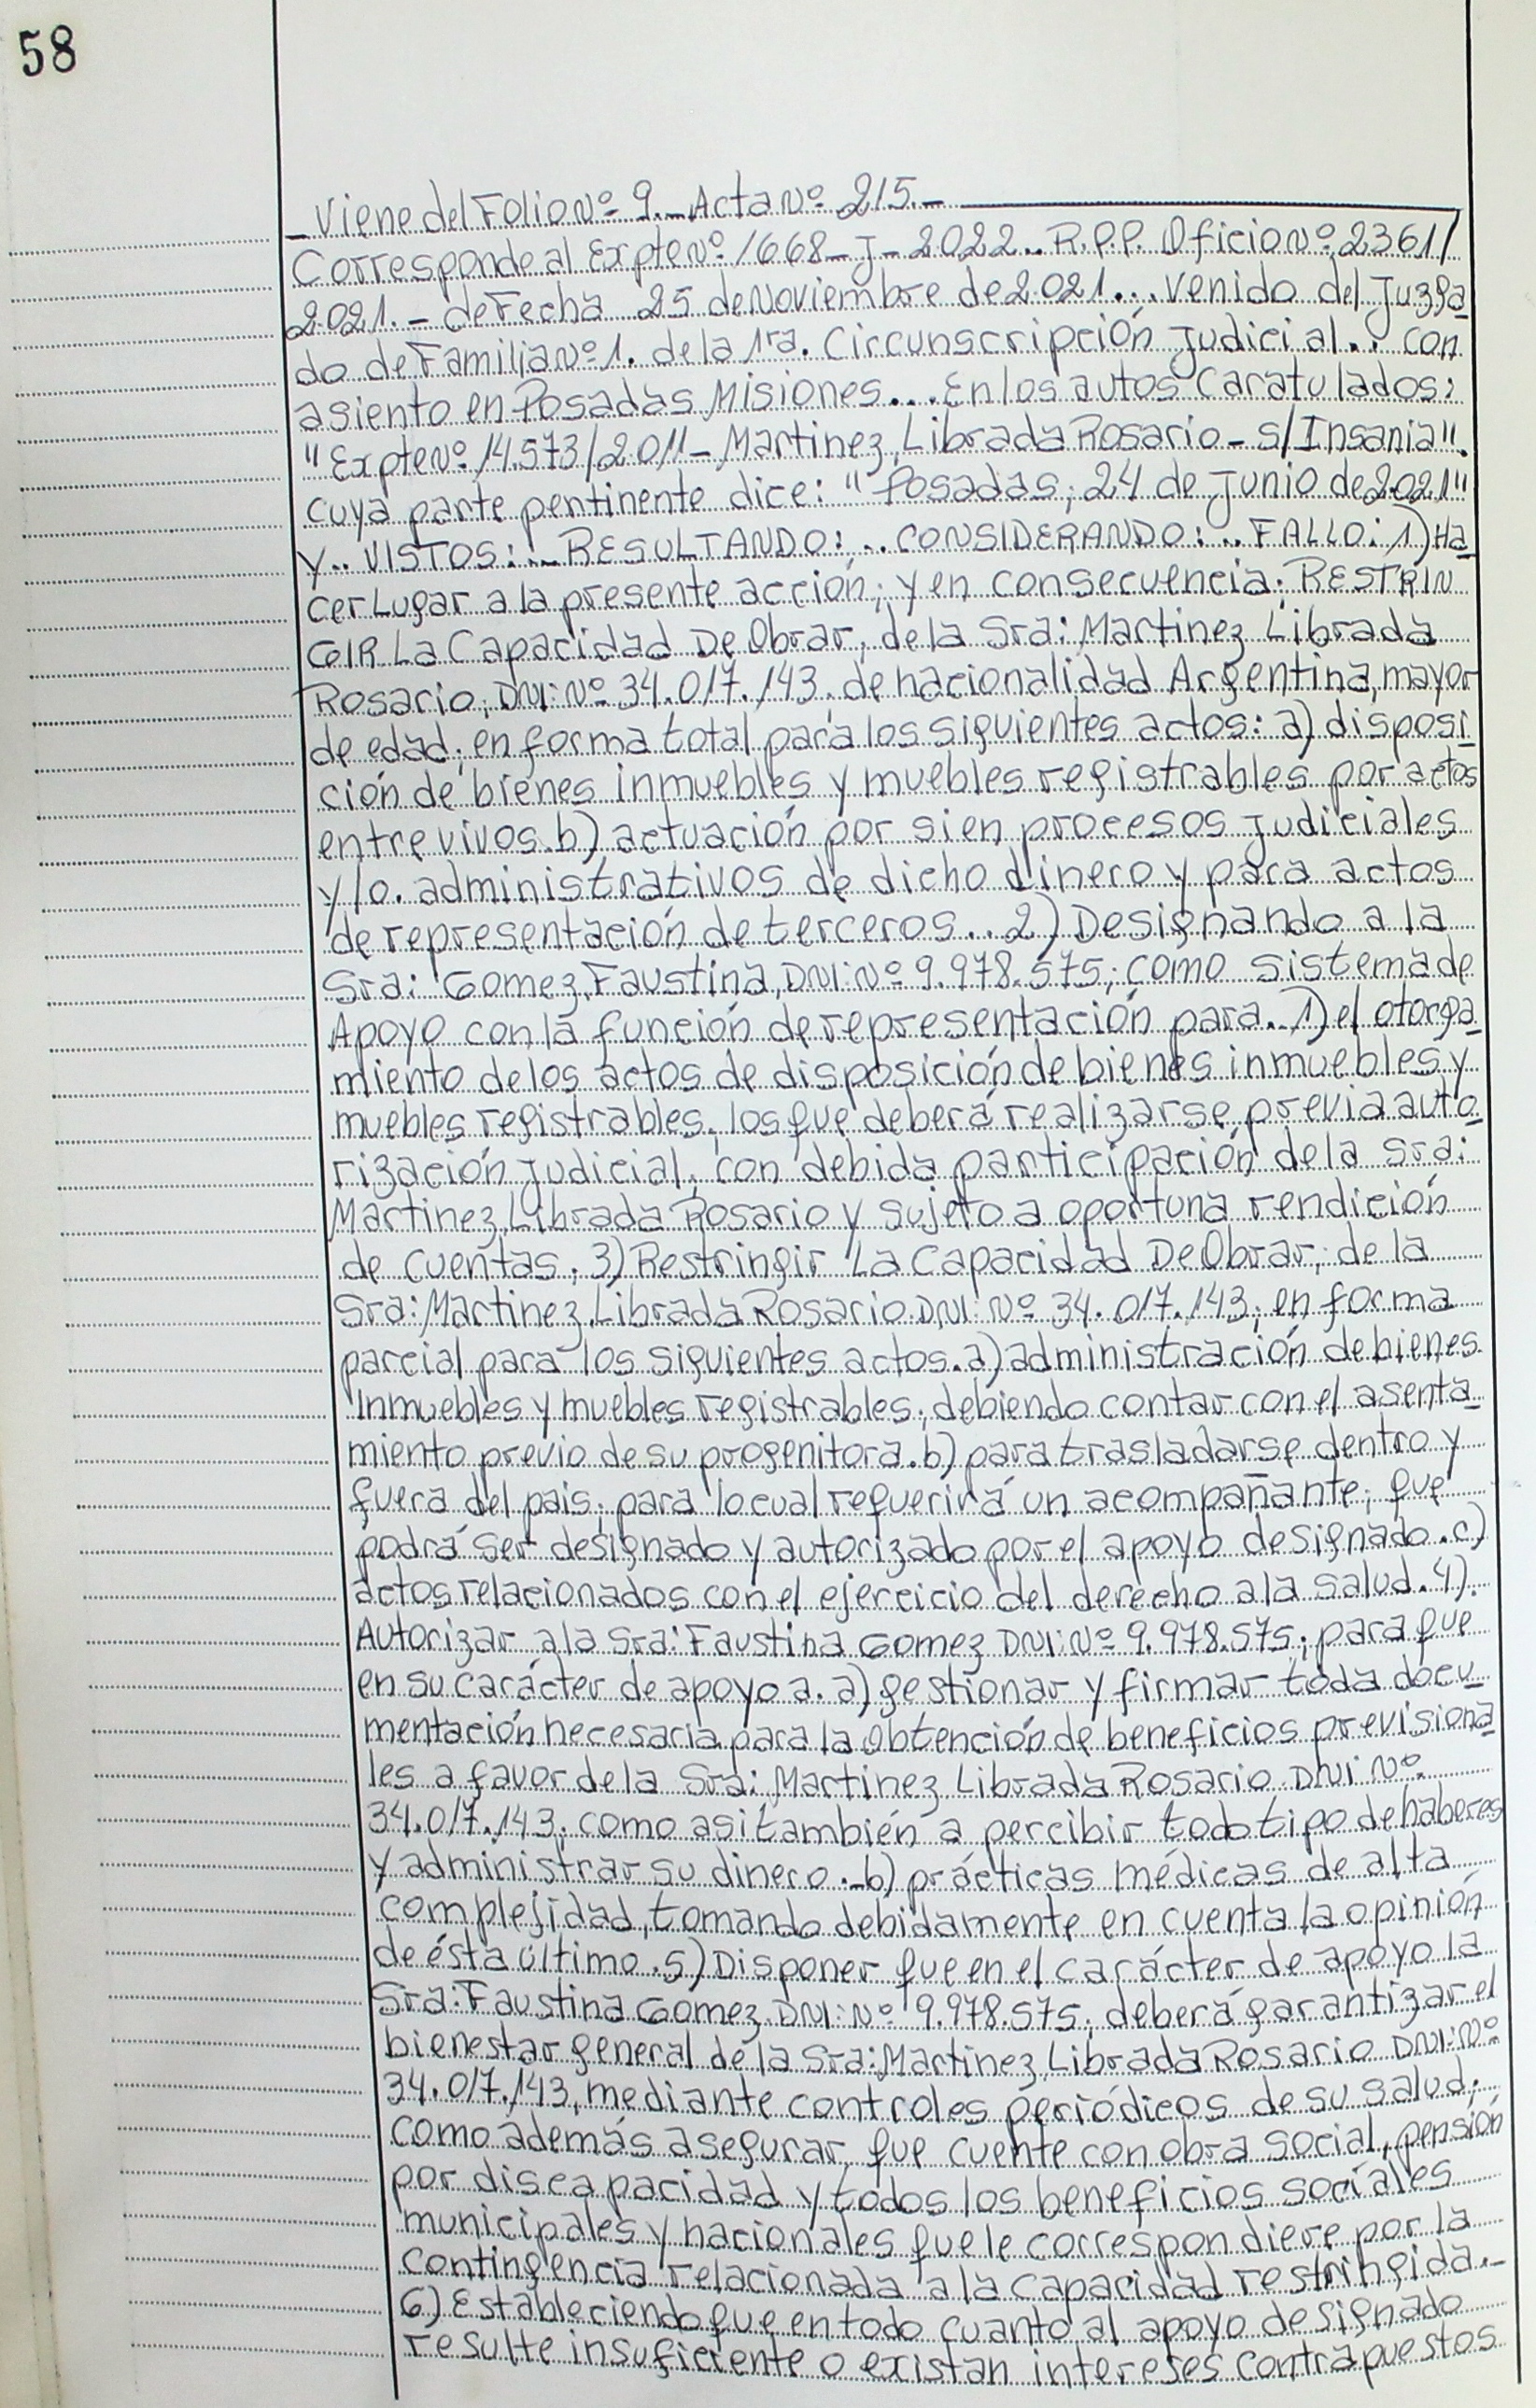 58
_ Viene del Folio Nº 9._ Acta Nº 215._
Corresponde al Expte Nº 1668_J_2022.. R.P.P. Oficio Nº 2361/
2021._ de Fecha 25 de Noviembre de 2021... Venido del Juzga
do de Familia Nº 1. de la 1ra. Circunscripción Judicial.. con
asiento en Posadas Misiones.... En los autos Caratulados:
"Expte Nº 14.573/2011_ Martinez, Librada Rosario_ s/Insania".
cuya parte pentinente dice: "Posadas, 24 de Junio de 2021"
Y.. VISTOS:... RESULTANDO:.. CONSIDERANDO:.. FALLO: 1) Ha
cer Lugar a la presente acción; y en consecuencia; RESTRIN
GIR La Capacidad De Obrar, de la Sra: Martinez Librada
Rosario, DNI: Nº 34.017.143. de nacionalidad Argentina, mayor
de edad; en forma total para los siguientes actos: a) disposi
ción de bienes inmuebles y muebles registrables por actos
entre vivos. b) actuación por si en procesos judiciales
y/o. administrativos de dicho dinero y para actos
de representación de terceros... 2) Designando a la
Sra: Gomez, Faustina, DNI: Nº 9.978.575; como sistema de
Apoyo con la función de representación para.. 1) el otorga
miento de los actos de disposición de bienes inmuebles y
muebles registrables, los que deberá realizarse previa auto
rización judicial, con debida participación de la Sra:
Martinez, Librada Rosario y sujeto a oportuna rendición
de cuentas. 3) Restringir La Capacidad De Obrar, de la
Sra: Martinez, Librada Rosario. DNI: Nº 34.017.143; en forma
parcial para los siguientes actos. a) administración de bienes
Inmuebles y muebles registrables; debiendo contar con el asenta
miento previo de su progenitora. b) para trasladarse dentro y
fuera del pais; para lo cual requerirá un acompañante, que
podrá ser designado y autorizado por el apoyo designado. c)
actos relacionados con el ejercicio del derecho a la salud. 4).
Autorizar a la Sra: Faustina Gomez DNI: Nº 9.978.575; para que
en su carácter de apoyo a. a) gestionar y firmar toda docu
mentación necesaria para la Obtención de beneficios previsiona
les a favor de la Sra: Martinez Librada Rosario. DNI Nº
34.017.143. como asi también a percibir todo tipo de haberes
y administrar su dinero._ b) prácticas médicas de alta
complejidad, tomando debidamente en cuenta la opinión
de ésta último. 5) Disponer que en el carácter de apoyo la
Sra: Faustina Gomez. DNI: Nº 9.978.575, deberá garantizar el
bienestar general de la Sra: Martinez, Librada Rosario DNI: Nº
34.017.143, mediante controles periódicos de su salud;
como además asegurar, que cuente con obra social, pensión
por discapacidad y todos los beneficios sociales
municipales y nacionales que le correspondiere por la
contingencia relacionada a la capacidad restringida._
6) Estableciendo que en todo cuanto al apoyo designado
resulte insuficiente o existan intereses contrapuestos